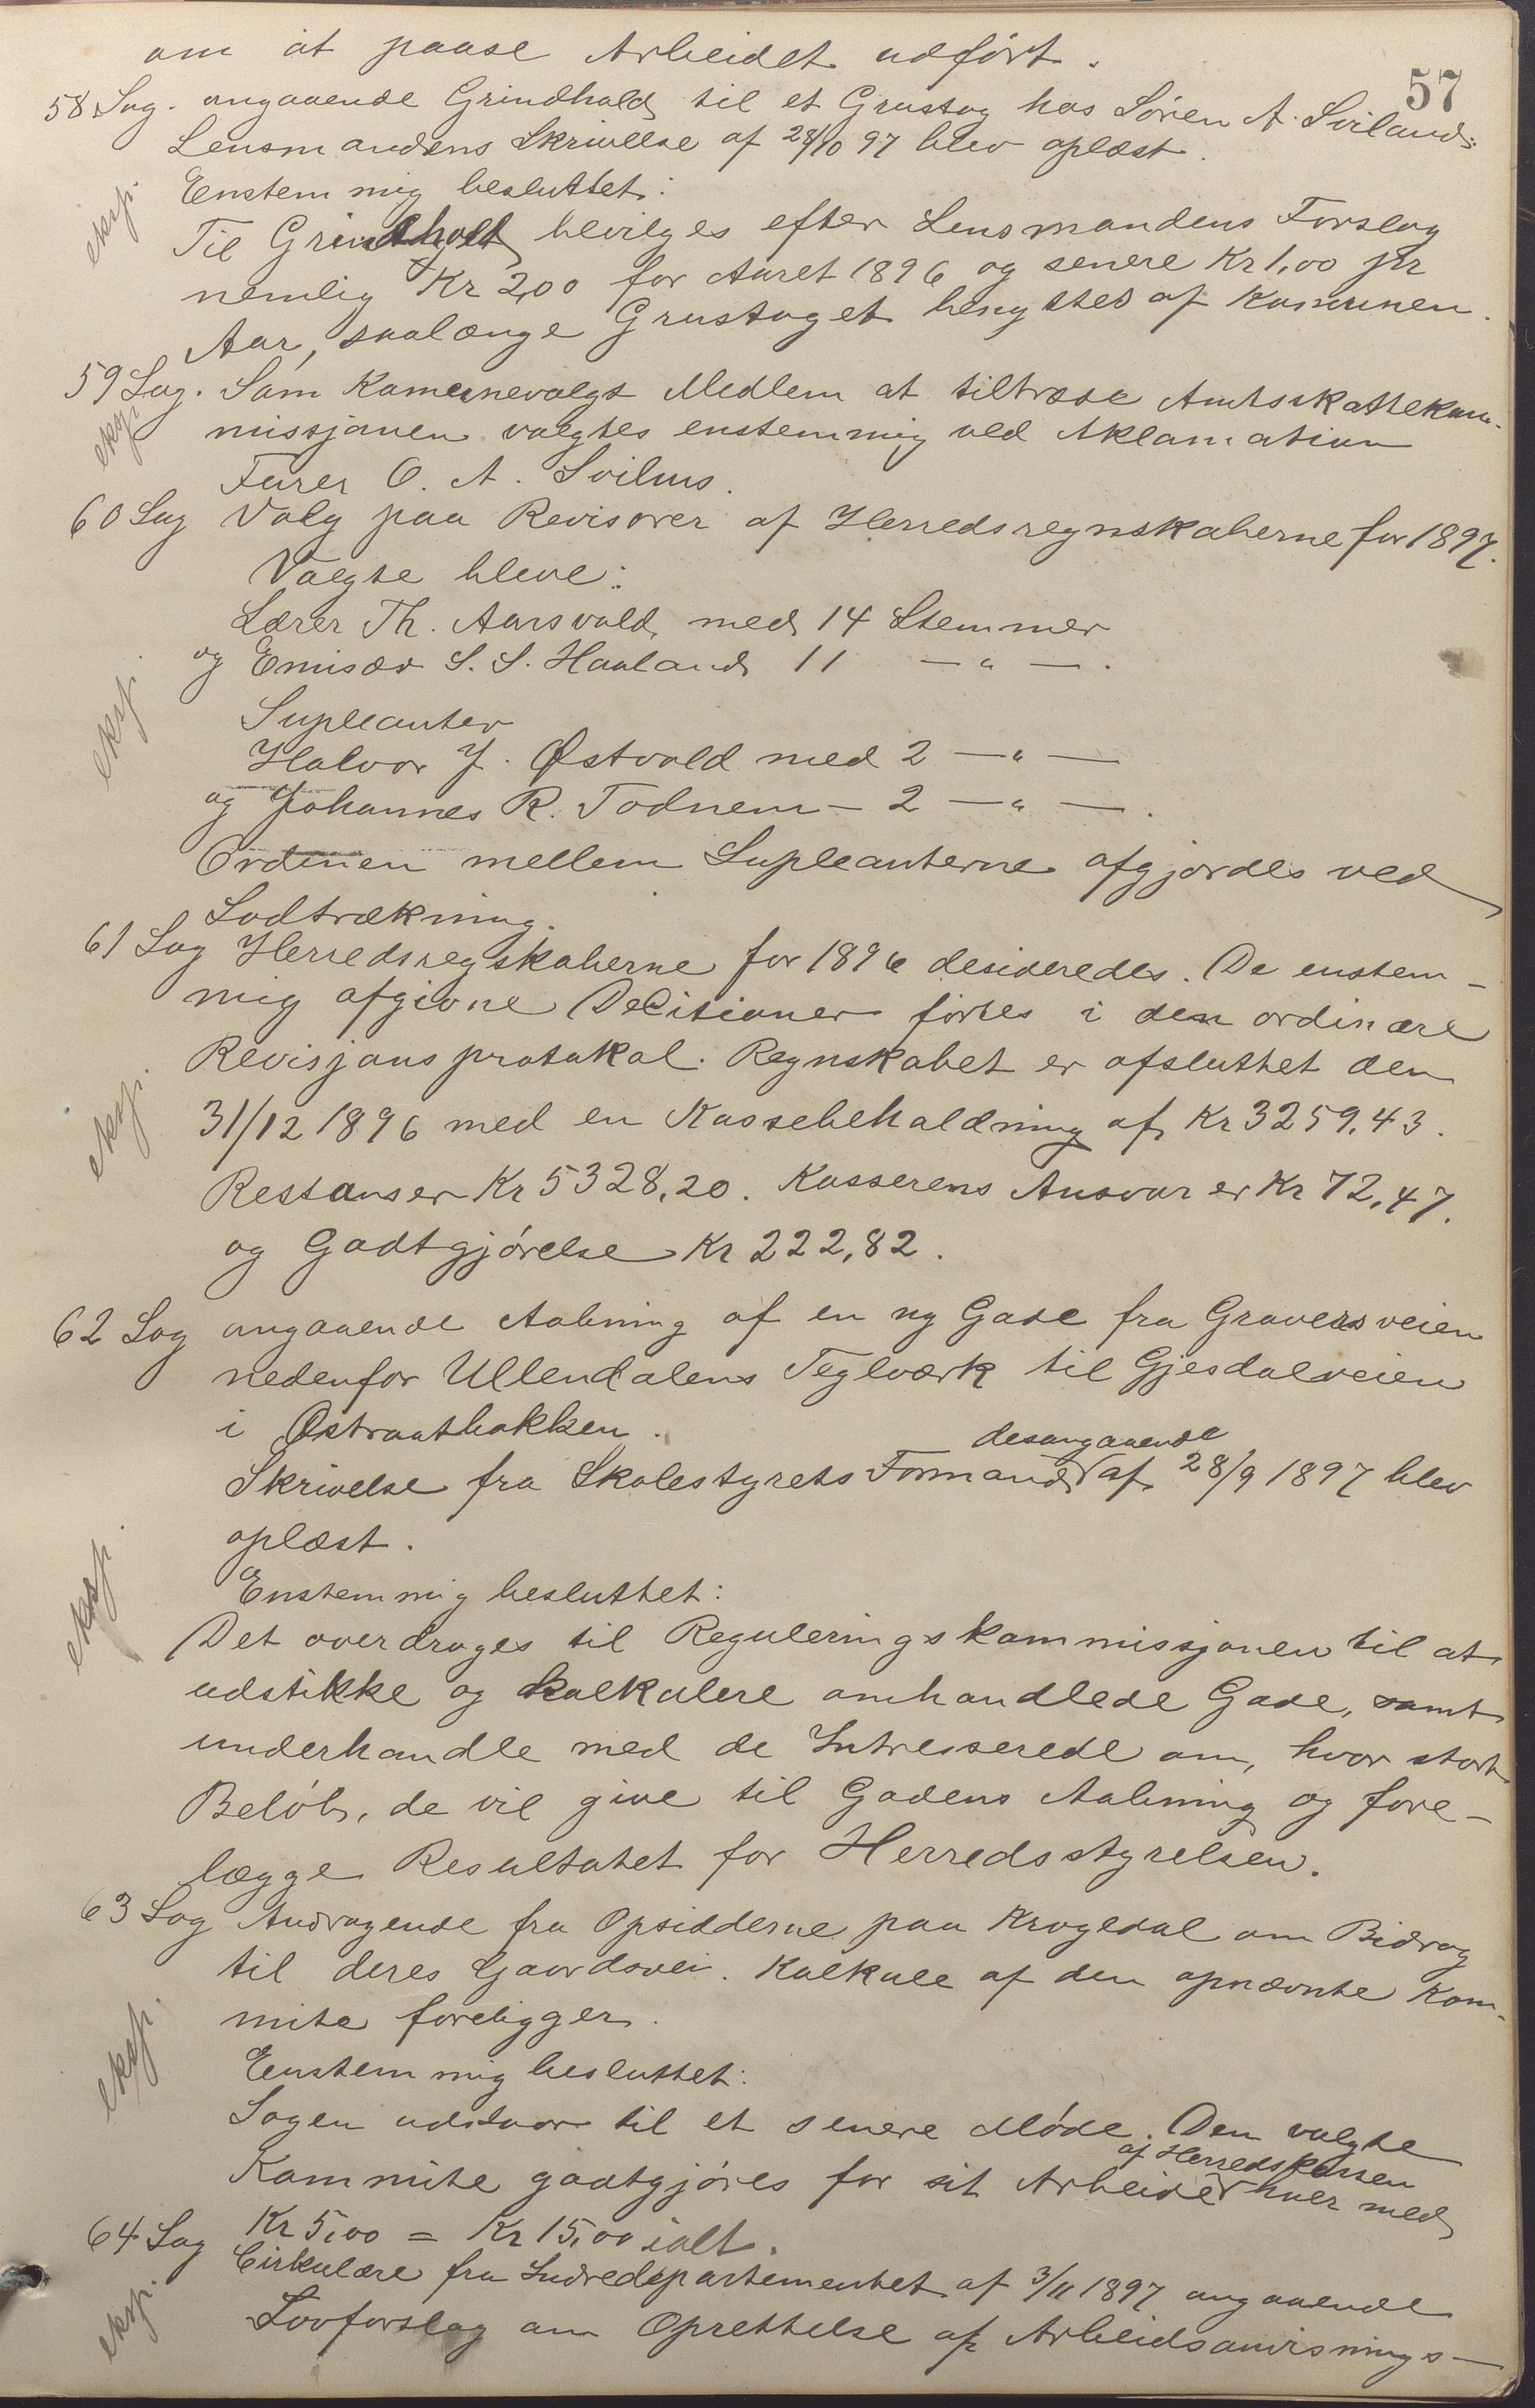 57
om at paase Arbeidet udført.
58 Sag. angaaende Grindhold til et Grustag hos Sören A. Sviland:
Lensmandens Skrivelse af 28/10 97 blev oplæst.
eksp. Enstemmig besluttet:
Til Grindhold bevilges efter Lensmandens Forslag
nemlig Kr 2,00 for Aaret 1896 og senere Kr 1,00 pr
Aar, saalænge Grustaget benyttes af Kommunen.
59 Sag. Som Kommunevalgt Medlem at tiltræde Amtsskattekom-
eksp. missjonen valgtes enstemmig ved Aklamation
Furer O. A. Svihus.
60 Sag Valg paa Revisorer af Herredsregnskaberne for 1897.
Valgte bleve:
Lærer Th. Aarsvold med 14 Stemmer
og Emisær S. S. Haaland 11 — " — .
eksp. Supleanter
Halvor J. Østvold med 2 — " —
og Johannes R. Todnem — 2 — " — .
Ordenen mellem Supleanterne afgjordes ved
Lodtrækning.
61 Sag Herredsregskaberne for 1896 desideredes. De enstem-
mig afgivne Decitioner förtes i den ordinære
Revisjonsprotokol. Regnskabet er afsluttet den
eksp. 31/12 1896 med en Kassebeholdning af Kr 3259,43.
Restanser Kr 5328,20. Kasserens Ansvar er Kr 72,47.
og Godtgjörelse Kr 222,82.
62 Sag angaaende Aabning af en ny Gade fra Graversveien
nedenfor Ullendalens Teglværk til Gjesdalveien
i Østraatbakken.
desangaaende
Skrivelse fra Skolestyrets Formand af 28/9 1897 blev
oplæst.
eksp. Enstemmig besluttet:
Det overdrages til Reguleringskommissjonen til at
udstikke og kalkulere omhandlede Gade, samt
underhandle med de Intresserede om, hvor stort
Belöb, de vil give til Gadens Aabning og fore-
lægge Resultatet for Herredsstyrelsen.
63 Sag Andragende fra Opsidderne paa Krogedal om Bidrag
til deres Gaardsvei. Kalkule af den opnævnte Kom-
mite foreligger.
eksp. Enstemmig besluttet:
Sagen udstaar til et senere Möde. Den valgte
af Herredskassen
Kommite godtgjöres for sit Arbeide hver med
Kr 5,00 = Kr 15,00 ialt.
64 Sag Cirkulære fra Indredepartementet af 3/11 1897 angaaende
eksp. Lovforslag om Oprettelse af Arbeidsanvisnings-